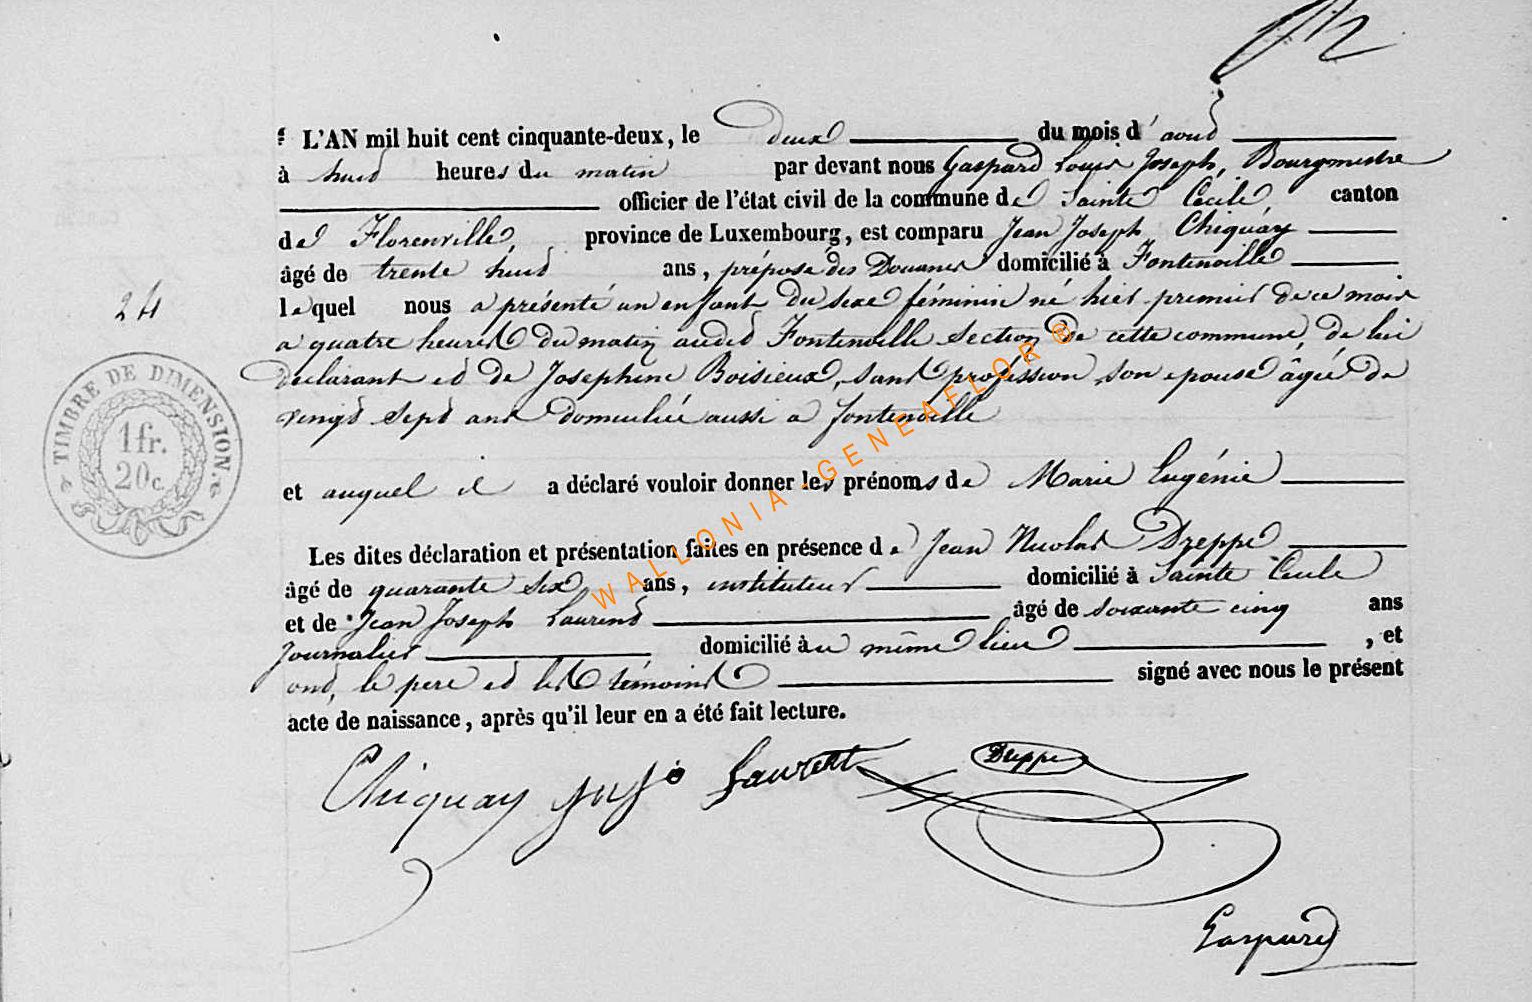 L'AN mil huit cent cinquante-deux, le deux du mois d'aout
à huit heures du matin par devant nous Gaspard Louis Joseph, Bourgmestre
officier de l'état civil de la commune de Sainte Cecile, canton
de Florenville, province de Luxembourg, est comparu Jean Joseph Chiquay
âgé de trente huit ans, préposé des Douanes domicilié à Fontenoille
lequel nous a présenté un enfant du sexe féminin né hier premier de ce mois
24
a quatre heures du matin audit Fontenoille section de cette commune, de lui
declarant et de Josephine Boisieux, sans profession, son epouse âgée de
TIMBRE DE DIMENSION.
1 fr.
20 c.
vingt sept ans domiciliée aussi a fontenoille
et auquel il a déclaré vouloir donner les prénoms de Marie Eugénie
Les dites déclaration et présentation faites en présence de Jean Nicolas Dreppe
âgé de quarante six ans, instituteur domicilié à Sainte Cecile
et de Jean Joseph Laurent âgé de soixante cinq ans
journalier domicilié à au même lieu, et
ont, le pere et les témoins signé avec nous le présent
acte de naissance, après qu'il leur en a été fait lecture.
Chiquay Laurent Dreppe
Gaspard
WALLONIA-GENEAFLOR®